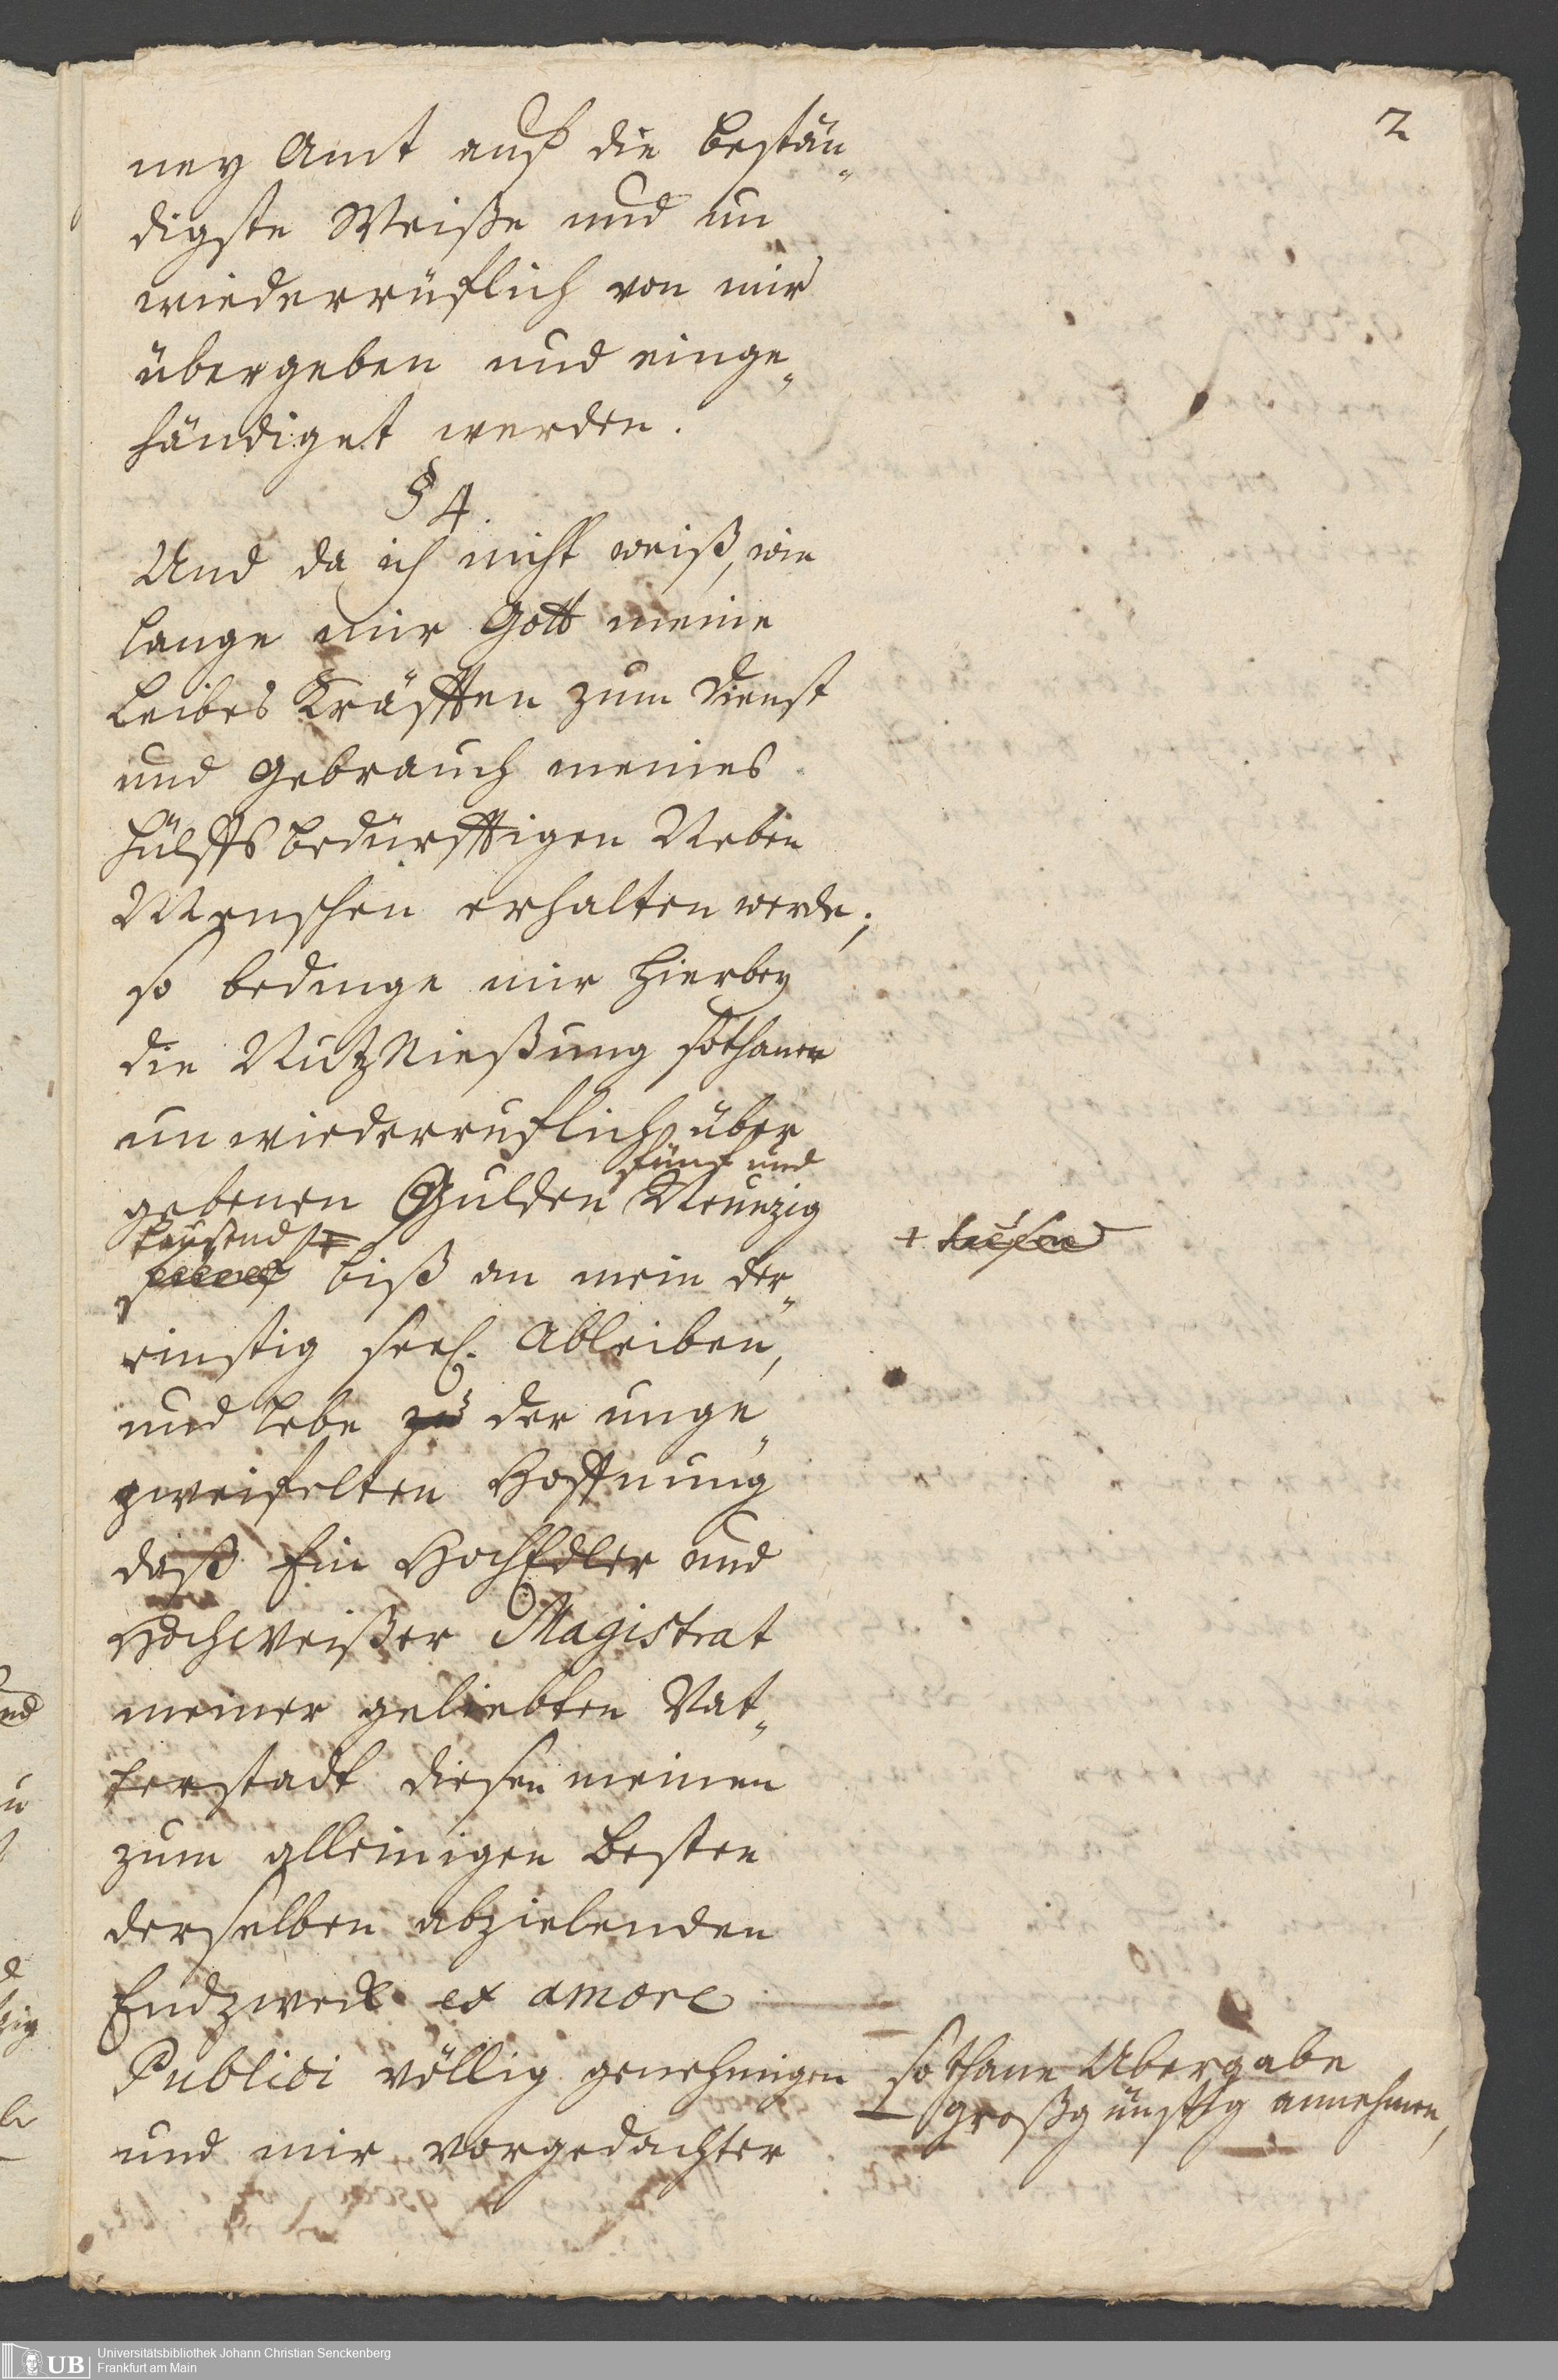 2
ney Amt auf die bestän„
digste Weiße und un
wiederrüflich von mir
übergeben und einge„
händiget werden.
§ 4.
Und da ich nicht weiß, wie
lange mir Gott meine
Leibes Kräfften zum Dienst
und Gebrauch meines
hülffsbedürfftigen Neben
Menschen erhalten werde;
so bedinge mir hierbey
die NutzNießung sothaner
unwiederruflich über
gebenen Gulden Neunzig
fünf und
tausend
fünf biß an mein der„
einstig seel. Ableiben,
und lebe zu der unge„
zweifelten Hoffnung
daß Ein HochEdler und
Hochweißer Magistrat
meiner geliebten Vat„
terstadt diesen meinen
zum alleinigen besten
derselben abzielenden
Endzweck ex amore
Publici völlig genehmigen
sothane Ubergabe
großgünstig annehmen,
und mir vorgedachter
UB
Universitätsbibliothek Johann Christian Senckenberg
Frankfurt am Main